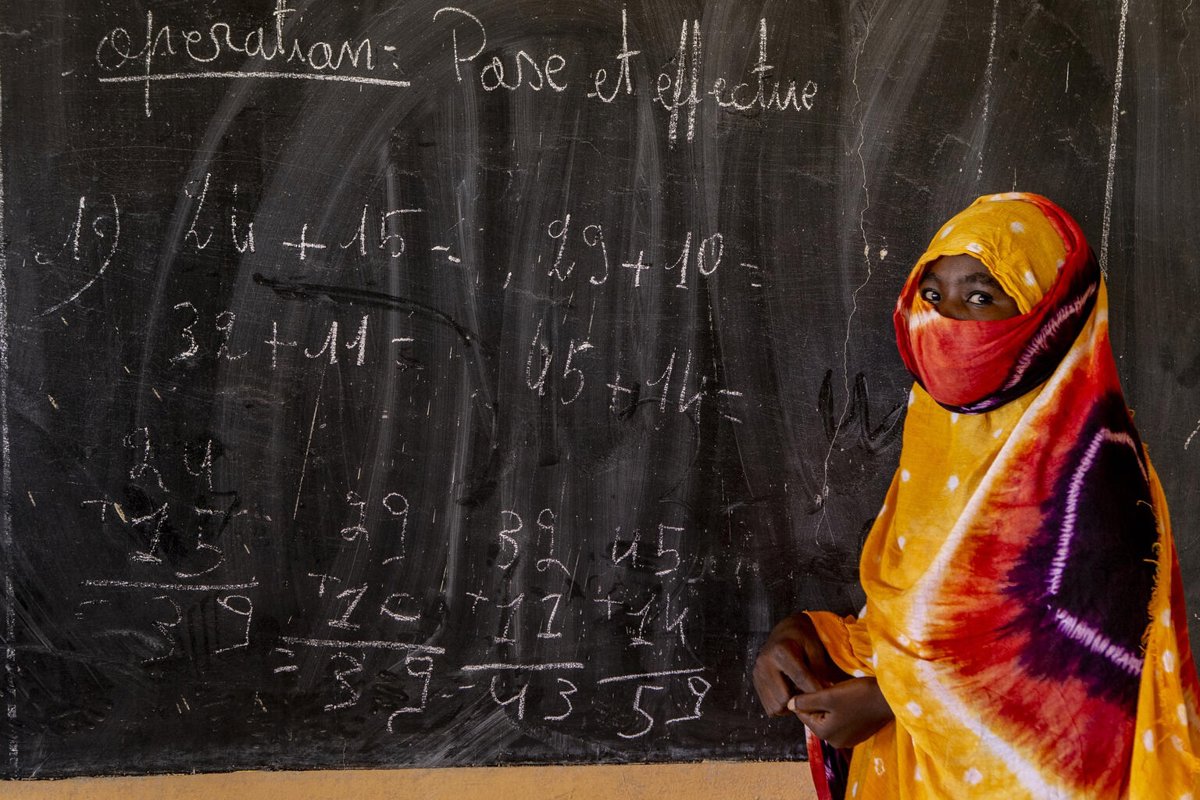 operation: Pose et effectue
1) 24 + 15 = , 29 + 10 =
32 + 11 = 45 + 14 =
24 29 32 45
+ 15 + 10 + 11 + 14
= 39 = 39 = 43 59